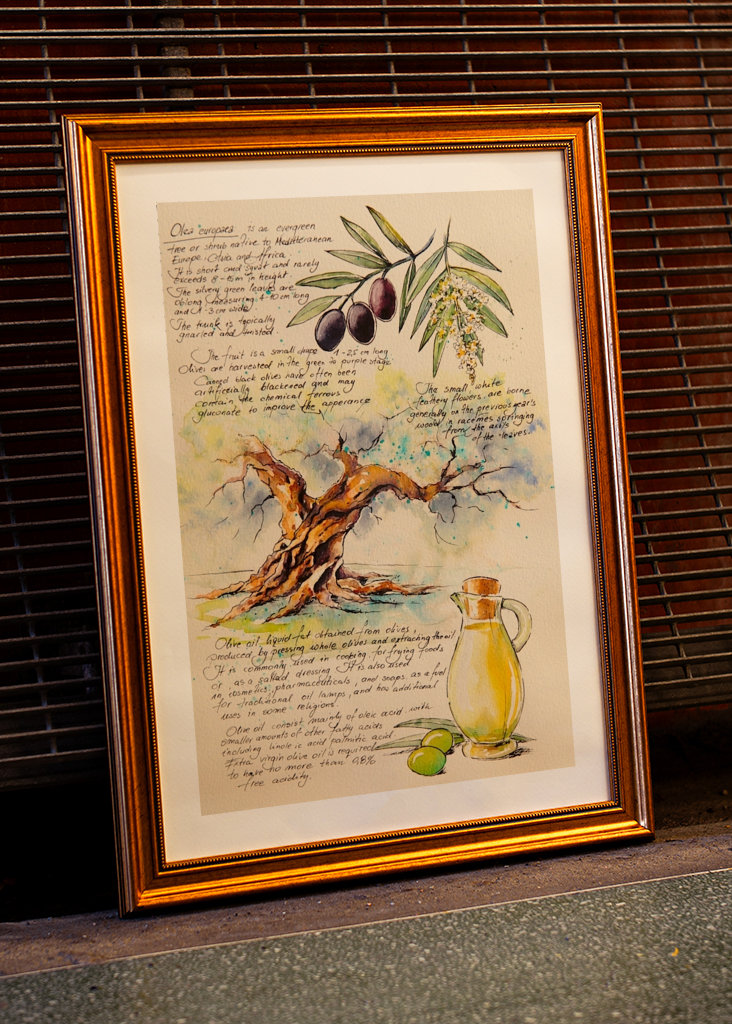 Olea europaea is an evergreen
tree or shrub native to Mediterranean
Europe, Asia and Africa.
It is short and squat and rarely
exceeds 8-15 m in height.
The silvery green leaves are
oblong measuring 4-10 cm long
and 1-3 cm wide.
The trunk is typically
gnarled and twisted.
The fruit is a small drupe 1-2,5 cm long
Olives are harvested in the green to purple stage.
Canned black olives have often been
artificially blackened and may
contain the chemical ferrous
gluconate to improve the apperance
The small white
feathery flowers are borne
generally on the previous year's
wood in racemes springing
from the axils
of the leaves.
Olive oil, liquid fat obtained from olives,
produced by pressing whole olives and extracting the oil
It is commonly used in cooking for frying foods
or as a salad dressing. It is also used
in cosmetics, pharmaceuticals, and soaps, as a fuel
for traditional oil lamps, and has additional
uses in some religions.
Olive oil consist mainly of oleic acid with
smaller amounts of other fatty acids
including linoleic acid palmitic acid
Extra virgin olive oil is required
to have no more than 0,8%
free acidity.